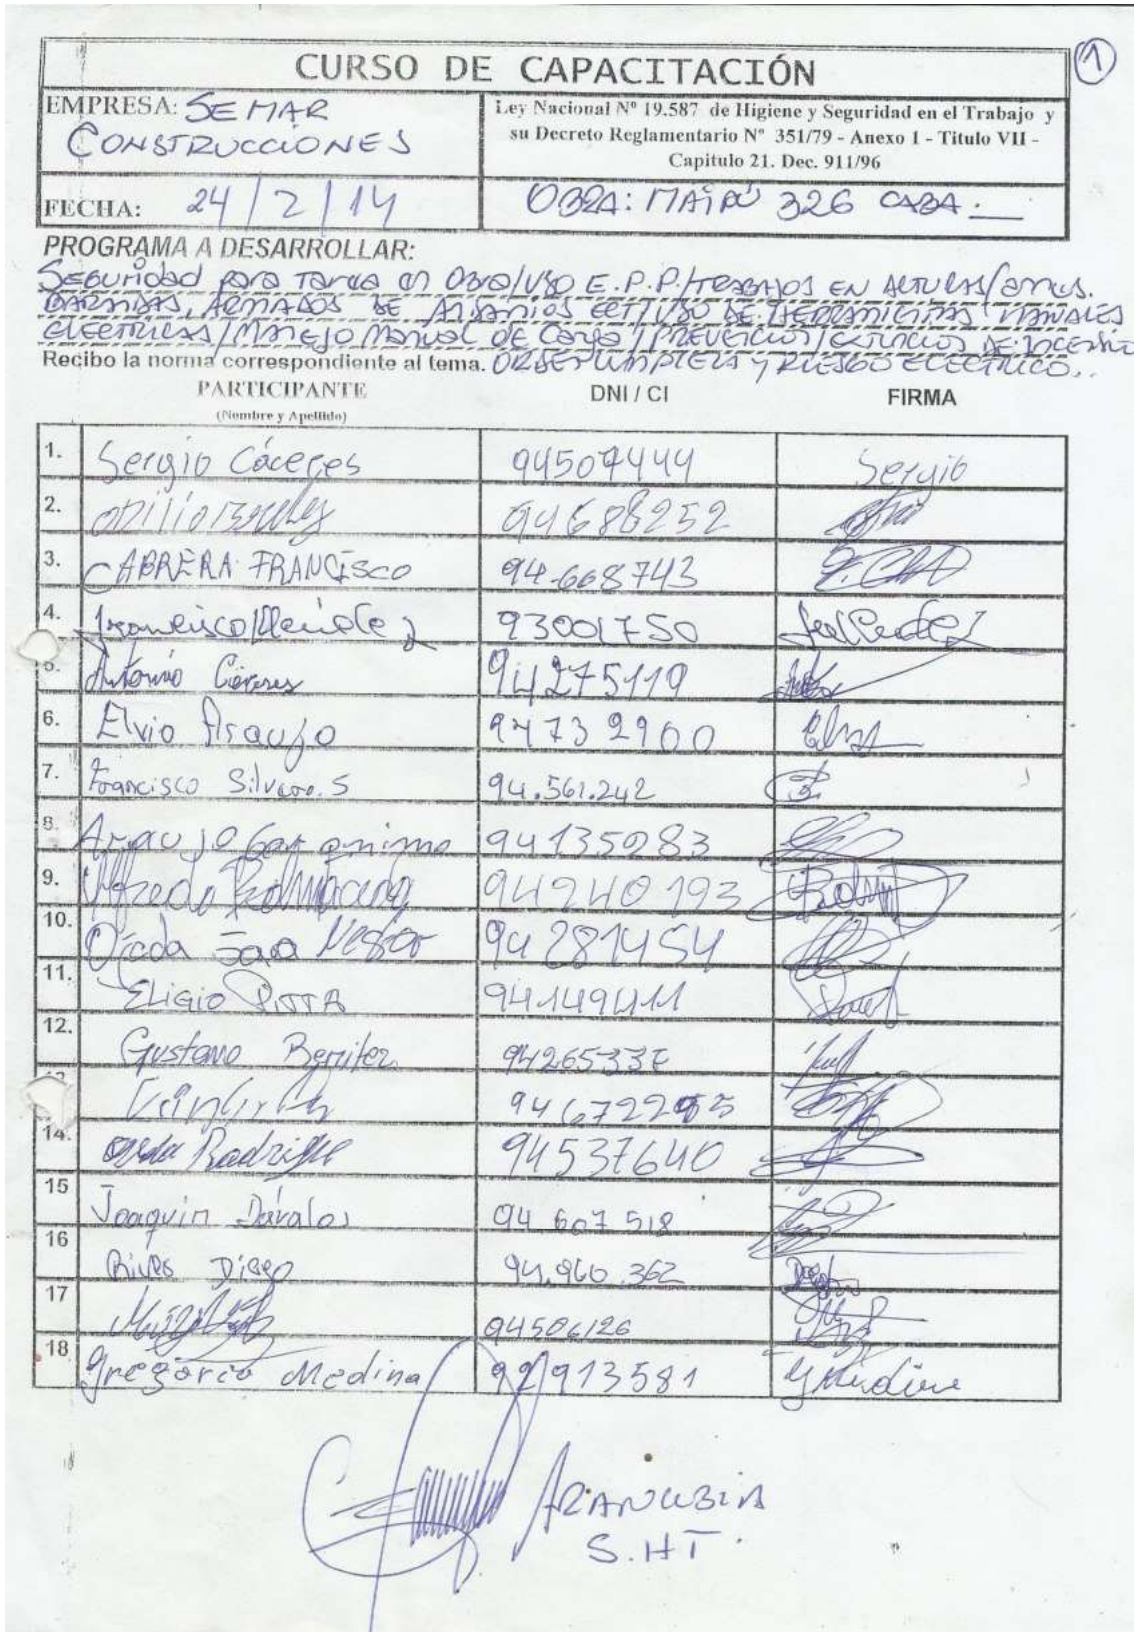 CURSO DE CAPACITACIÓN
1
EMPRESA: SEMAR
CONSTRUCCIONES
Ley Nacional Nº 19.587 de Higiene y Seguridad en el Trabajo y
su Decreto Reglamentario Nº 351/79 - Anexo 1 - Titulo VII -
Capitulo 21. Dec. 911/96
FECHA: 24/2/14
OBRA: MAIPÚ 326 CABA.
PROGRAMA A DESARROLLAR:
Seguridad para Tarea en Obra/USO E.P.P./TRABAJOS EN ALTURAS/
ARMADOS DE ANDAMIOS /USO DE HERRAMIENTAS MANUALES
ELECTRICAS/Manejo Manual de Carga/PREVENCION/EXTINCION DE INCENDIO
Recibo la norma correspondiente al tema. ORDEN LIMPIEZA Y RIESGO ELECTRICO..
PARTICIPANTE
(Nombre y Apellido)
DNI / CI
FIRMA
1. Sergio Cáceres 94507444 Sergio
2. 94688252
3. CABRERA FRANCISCO 94.668743
4. Francisco 93001750
5. Antonio Cáceres 94275119
6. Elvio Araujo 94732900
7. Francisco Silvero.S 94.561.242
8. Araujo Geronimo 94135083
9. Alfredo 94240193
10. Ojeda Jara Nestor 94281454
11. ELIGIO PITTA 94149411
12. Gustavo Benitez 94265337
13
14. Rodrigue 94537640
15 Joaquin Dávalos 94 607 518
16 Rivas Diego 94.960.362
17 94506126
18 Gregorio Medina 92913581
ARANCIBIA
S.HT.